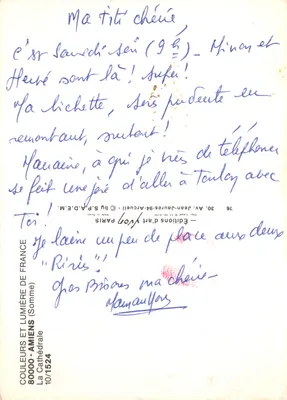 Ma titi chérie,
C'est Samedi soir (9h) - Minou et
Hervé sont là ! Super !
Ma bichette, sois prudente en
remontant, surtout !
Marraine, à qui je viens de téléphoner
se fait une joie d'aller à Toulon avec
Toi !
Je laisse un peu de place aux deux
"Riris" !
Gros Bisous ma chérie -
COULEURS ET LUMIÈRE DE FRANCE
80000 - AMIENS (Somme)
La Cathédrale
10/1524
- Éditions d'art yvon PARIS
30, Av. Jean-Jaurès-94-Arcueil - © by S.P.A.D.E.M.